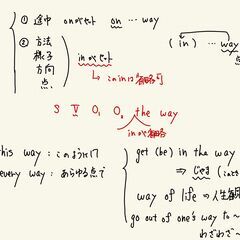 ① 途中 onがセット on … way
② 方法
様子
方向
点
inがセット
(in) … way
点
→ このinは省略可
S V O₁ O₂ the way
inが省略
this way : このように
every way : あらゆる点で
get (be) in the way
⇒ じゃま
way of life =
go out of one's way to ~
わざわざ~